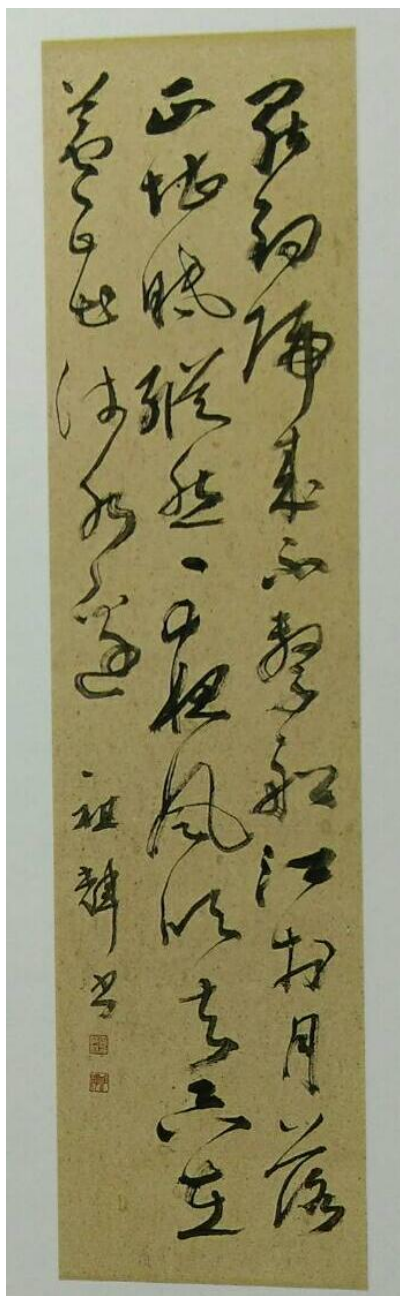 罷釣歸來不繫船江村月落
正堪眠縱然一夜風吹去只在
蘆花淺水邊 祖輝書